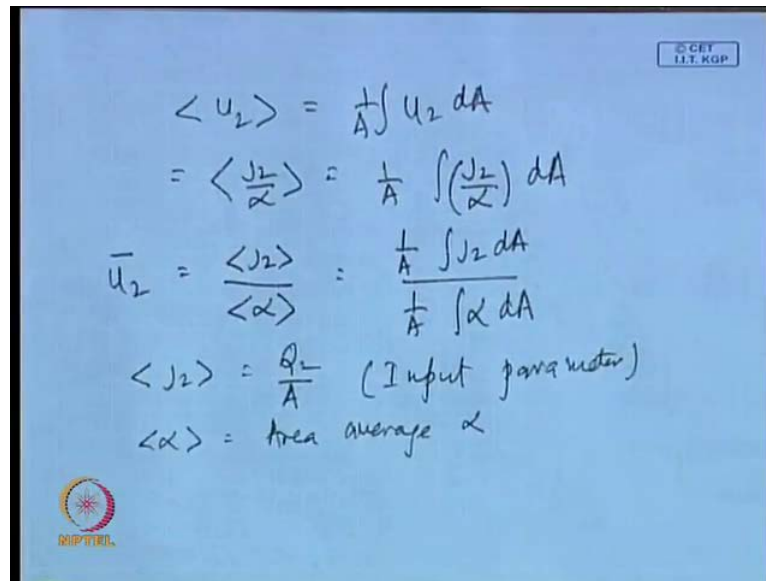 © CET
I.I.T. KGP
< u₂ > = 1/A ∫ u₂ dA
= < J₂/α > = 1/A ∫ (J₂/α) dA
ū₂ = <J₂>/<α> = (1/A ∫ J₂ dA)/(1/A ∫ α dA)
< J₂ > = Q₂/A (Input parameter)
<α> = Area average α
NPTEL